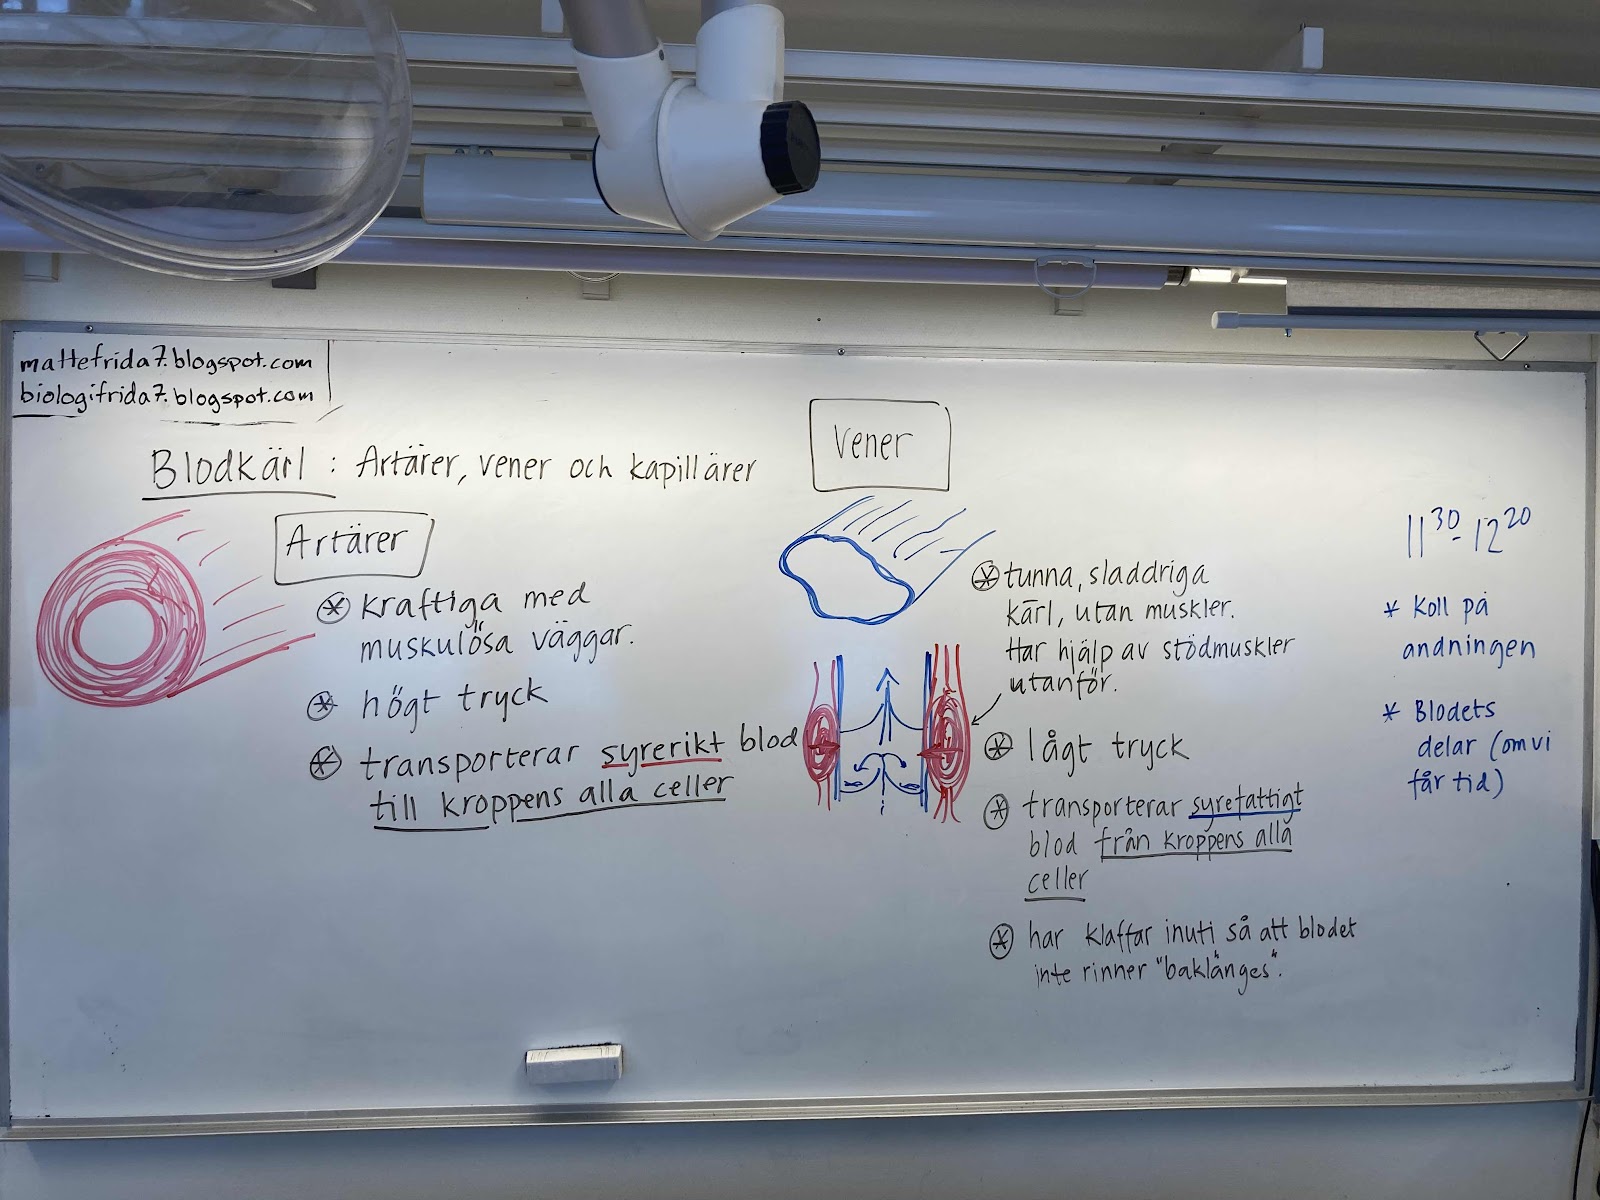 mattefrida7.blogspot.com
biologifrida7.blogspot.com
Blodkärl : Artärer, vener och kapillärer
Artärer
* kraftiga med
muskulösa väggar.
* högt tryck
* transporterar syrerikt blod
till kroppens alla celler
Vener
* tunna, sladdriga
kärl, utan muskler.
Har hjälp av stödmuskler
utanför.
* lågt tryck
* transporterar syrefattigt
blod från kroppens alla
celler
* har klaffar inuti så att blodet
inte rinner "baklänges".
11³⁰-12²⁰
* Koll på
andningen
* Blodets
delar (om vi
får tid)